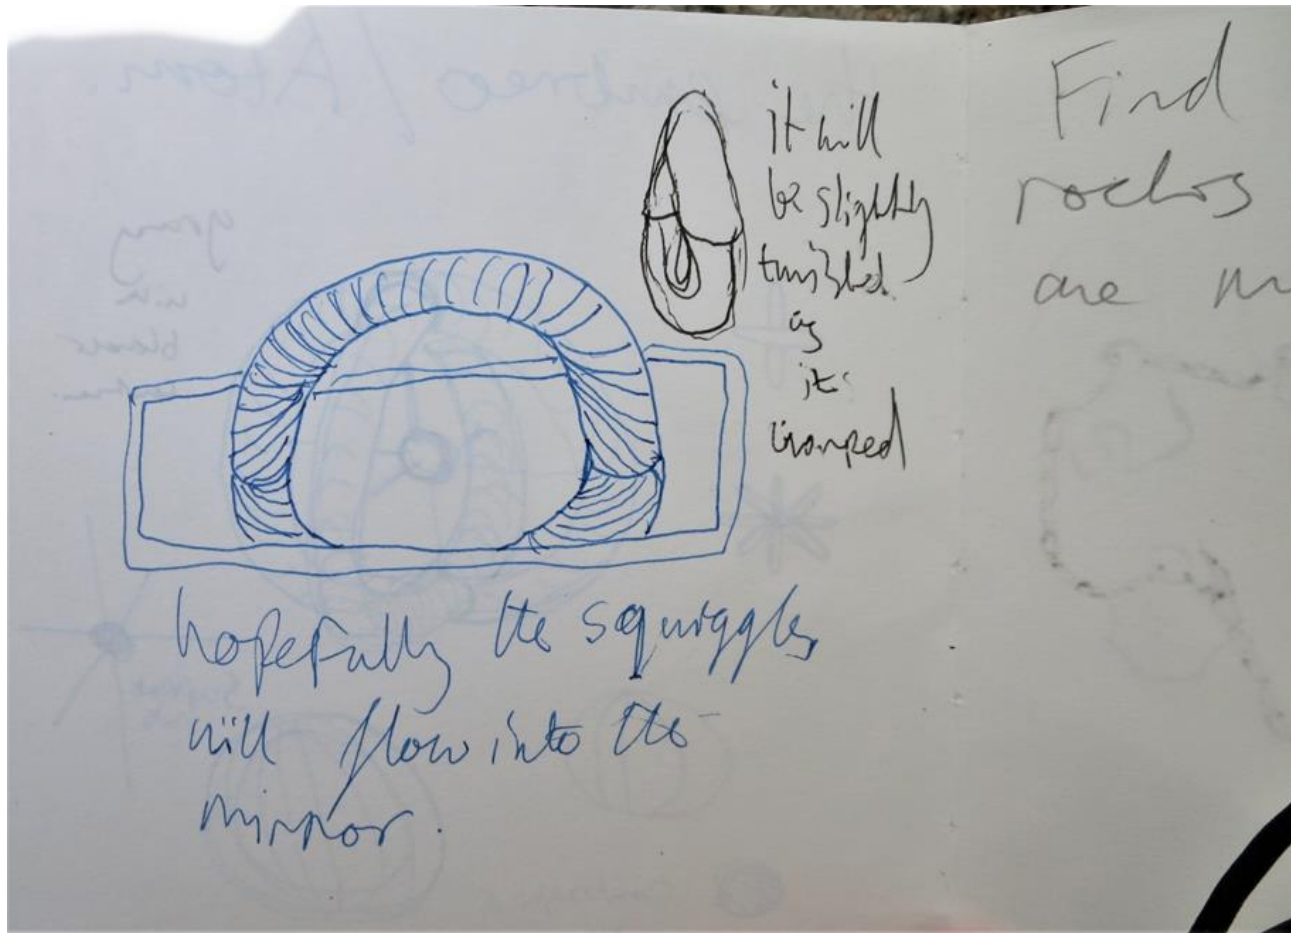 it will
be slightly
twisted
as
it
warped
Find
rocks
are
hopefully the squiggles
will flow into the
mirror.